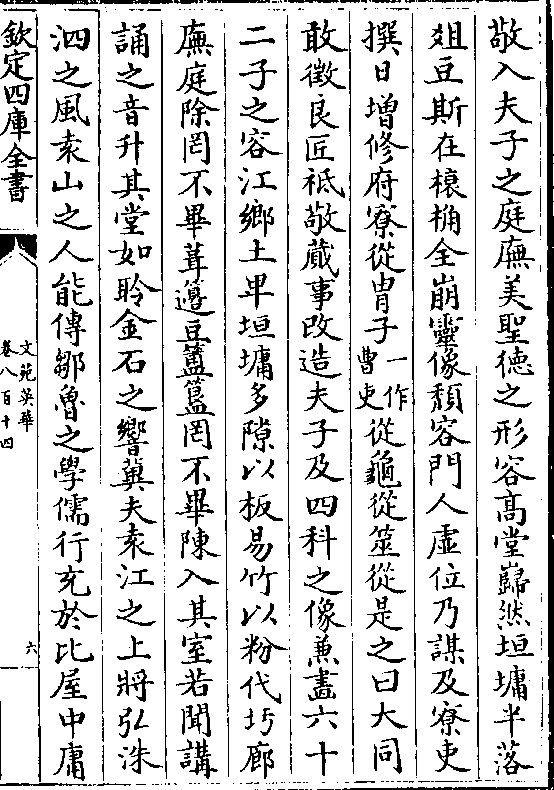 敬入夫子之庭廡美聖徳之形容髙堂巋然垣墉半落
俎豆斯在榱桷全崩靈像頽容門人虚位乃謀及寮吏
撰日增修府寮從胄子一作曹吏從龜從筮從是之曰大同
敢徴良匠祗敬蕆事改造夫子及四科之像兼畫六十
二子之容江鄉土卑垣墉多隙以板易竹以粉代圬廊
廡庭除罔不畢葺籩豆簠簋罔不畢陳入其室若聞講
誦之音升其堂如聆金石之響冀夫袁江之上將弘洙
泗之風袁山之人能傳鄒魯之學儒行充於比屋中庸
欽定四庫全書
文苑英華
卷八百十四
六